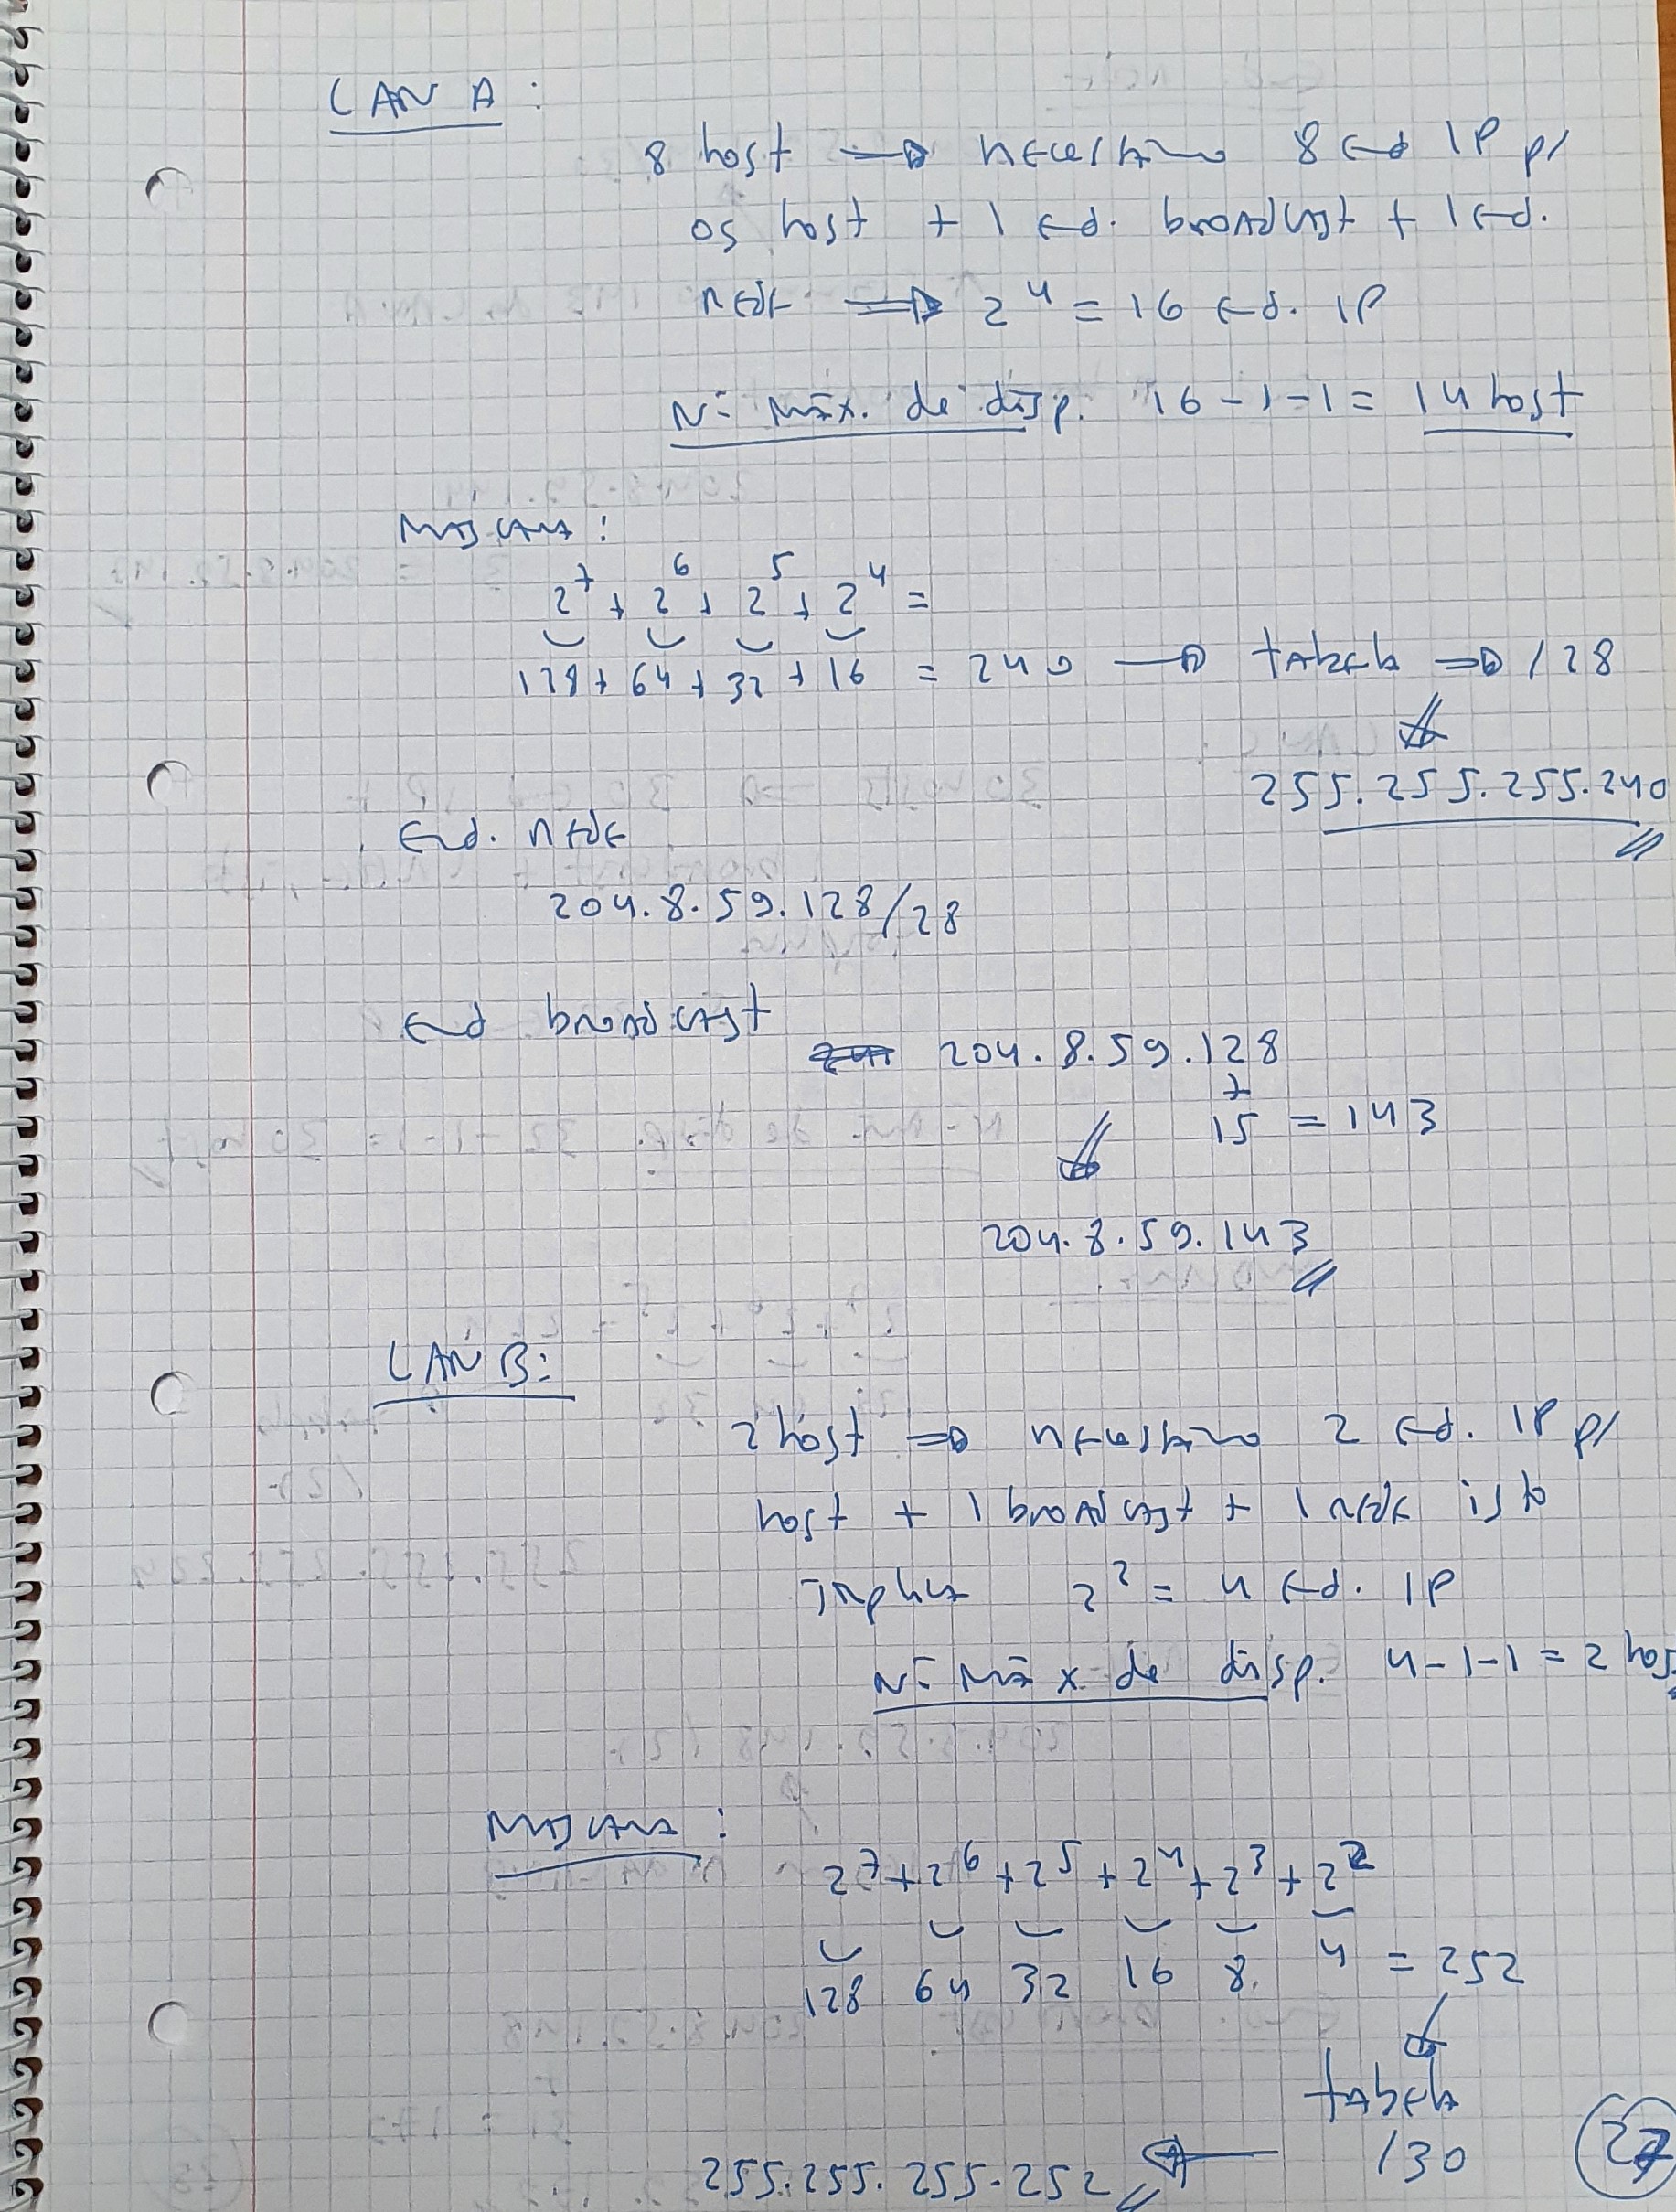 LAN A:
8 host → necessário 8 end IP p/
os host + 1 end. broadcast + 1 end.
rede ⇒ 2^4 = 16 end. IP
Nº máx. de disp. 16-1-1 = 14 host
Mascara:
2^7 + 2^6 + 2^5 + 2^4 =
128 + 64 + 32 + 16 = 240 → tabela ⇒ /28
255.255.255.240
End. rede
204.8.59.128/28
End broadcast
204.8.59.128
+
15 = 143
204.8.59.143
LAN B:
2 host ⇒ necessário 2 end. IP p/
host + 1 broadcast + 1 rede isto
implica 2^2 = 4 end. IP
Nº máx de disp. 4-1-1 = 2 host
Mascara:
2^7 + 2^6 + 2^5 + 2^4 + 2^3 + 2^2
128 64 32 16 8 4 = 252
tabela
/30
255.255.255.252
27